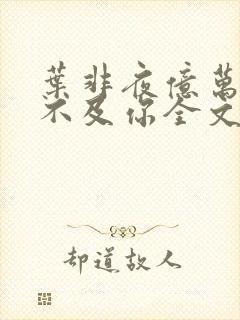 葉非夜億萬
不及你全文
却道故人